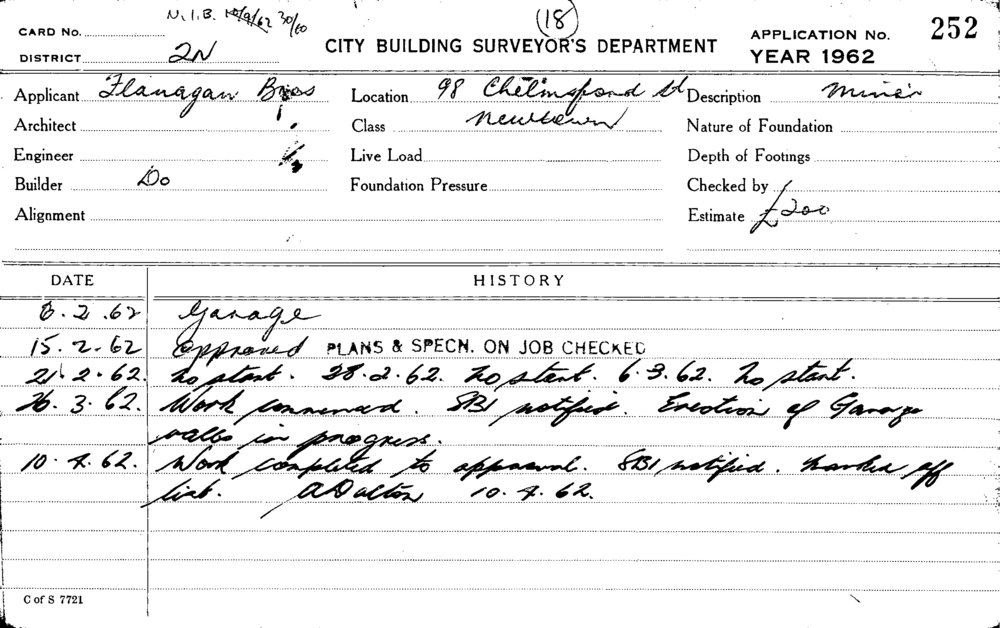 N.I.B. 10/9/62 30/60
(18)
CARD No.
CITY BUILDING SURVEYOR'S DEPARTMENT
APPLICATION No. 252
DISTRICT 2N
YEAR 1962
Applicant Flanagan Bros Location 98 Chelmsford St Description Minor
Architect Class Newtown Nature of Foundation
Engineer Live Load Depth of Footings
Builder Do Foundation Pressure Checked by
Alignment Estimate £200
DATE HISTORY
8.2.62 Garage
15.2.62 Approved PLANS & SPECN. ON JOB CHECKED
21.2.62. No start. 28.2.62. No start. 6.3.62. No start.
26.3.62. Work commenced. SBI notified. Erection of Garage
walls in progress.
10.4.62. Work completed to approval. SBI notified. Marked off
list. A Dalton 10.4.62.
C of S 7721